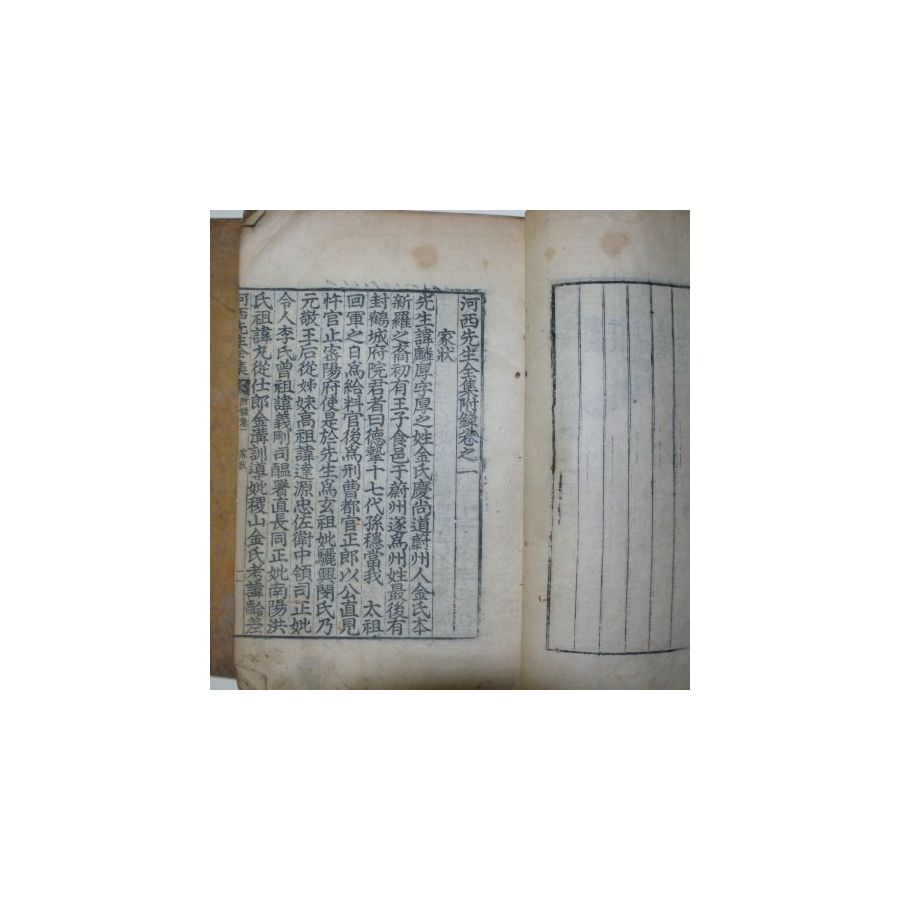 河西先生全集附錄卷之一
家狀
先生諱麟厚字厚之姓金氏慶尙道蔚州人金氏本
新羅之裔初有王子食邑于蔚州遂爲州姓最後有
封鶴城府院君者曰德摯十七代孫穩當我 太祖
回軍之日爲給料官後爲刑曹都官正郎以公直見
忤官止密陽府使是於先生爲玄祖妣驪興閔氏乃
元敬王后從姊妹高祖諱達源忠佐衛中領司正妣
令人李氏曾祖諱義剛司醞署直長同正妣南陽洪
氏祖諱丸從仕郎金溝訓導妣稷山金氏考諱齡差
河西先生全集 附錄卷一 家狀 一